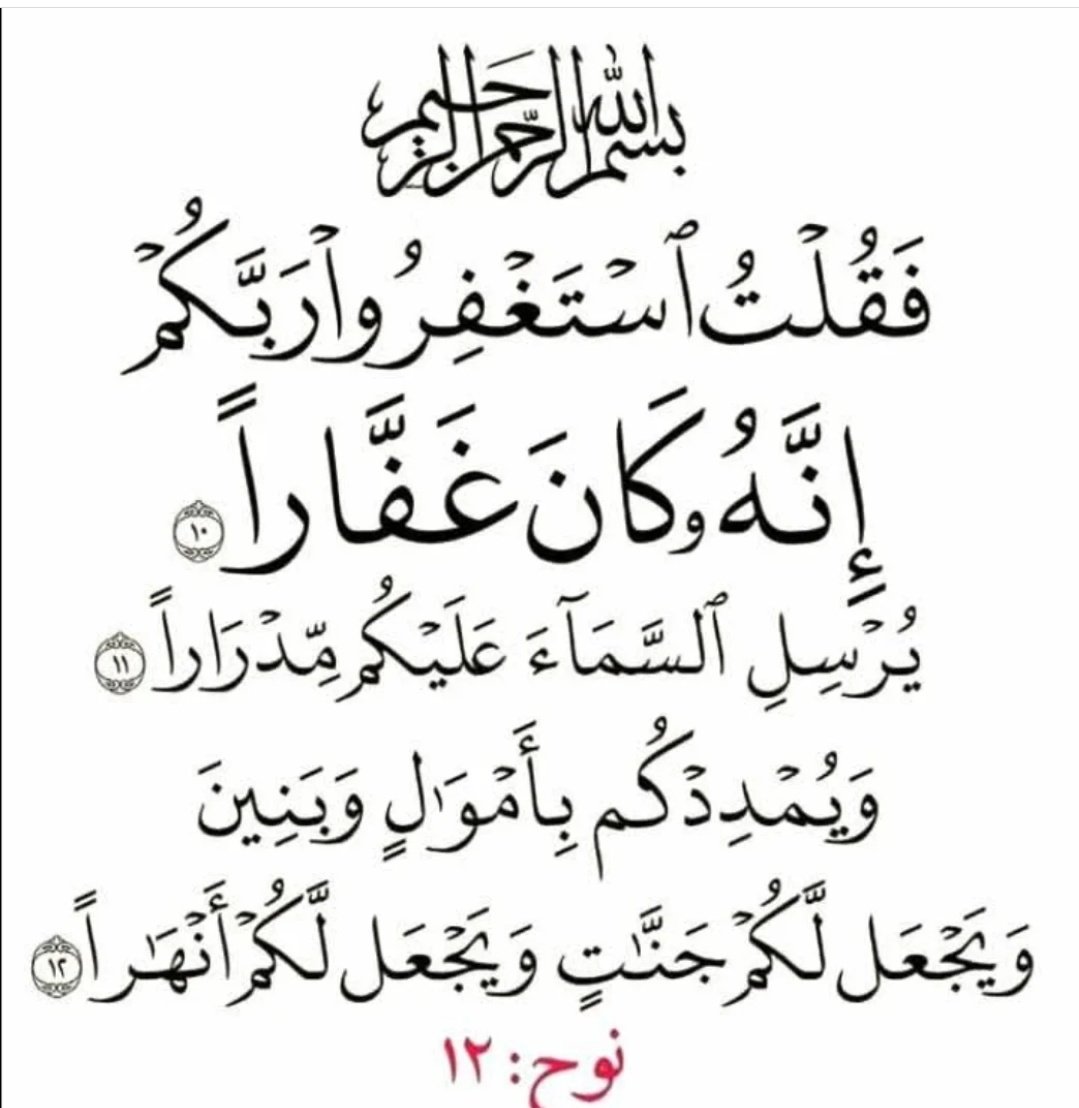 بسم الله الرحمن الرحيم
فَقُلۡتُ ٱسۡتَغۡفِرُواْ رَبَّكُمۡ
إِنَّهُۥ كَانَ غَفَّاراً ١٠
يُرۡسِلِ ٱلسَّمَآءَ عَلَيۡكُم مِّدۡرَاراً ١١
وَيُمۡدِدۡكُم بِأَمۡوَٰلٍ وَبَنِينَ
وَيَجۡعَل لَّكُمۡ جَنَّٰتٍ وَيَجۡعَل لَّكُمۡ أَنۡهَٰراً ١٢
نوح: ١٢